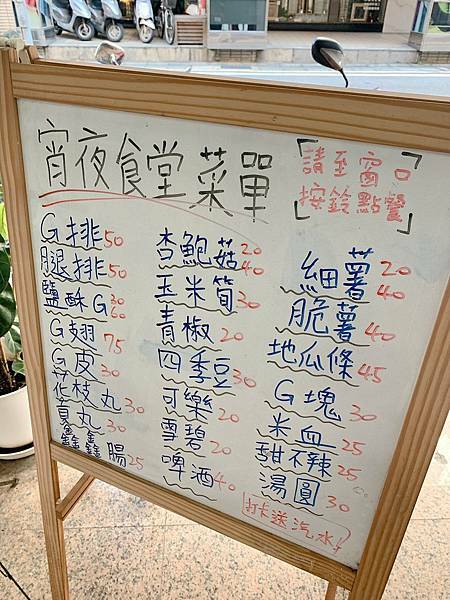 宵夜食堂菜單
請至窗口
按鈴點餐
G排50
腿排50
鹽酥G30 60
G翅75
G皮30
花枝丸30
貢丸30
鑫鑫腸25
杏鮑菇20 40
玉米筍30
青椒20
四季豆30
可樂20
雪碧20
啤酒40
細薯20 40
脆薯40
地瓜條45
G塊30
米血25
甜不辣25
湯圓30
打卡送汽水!